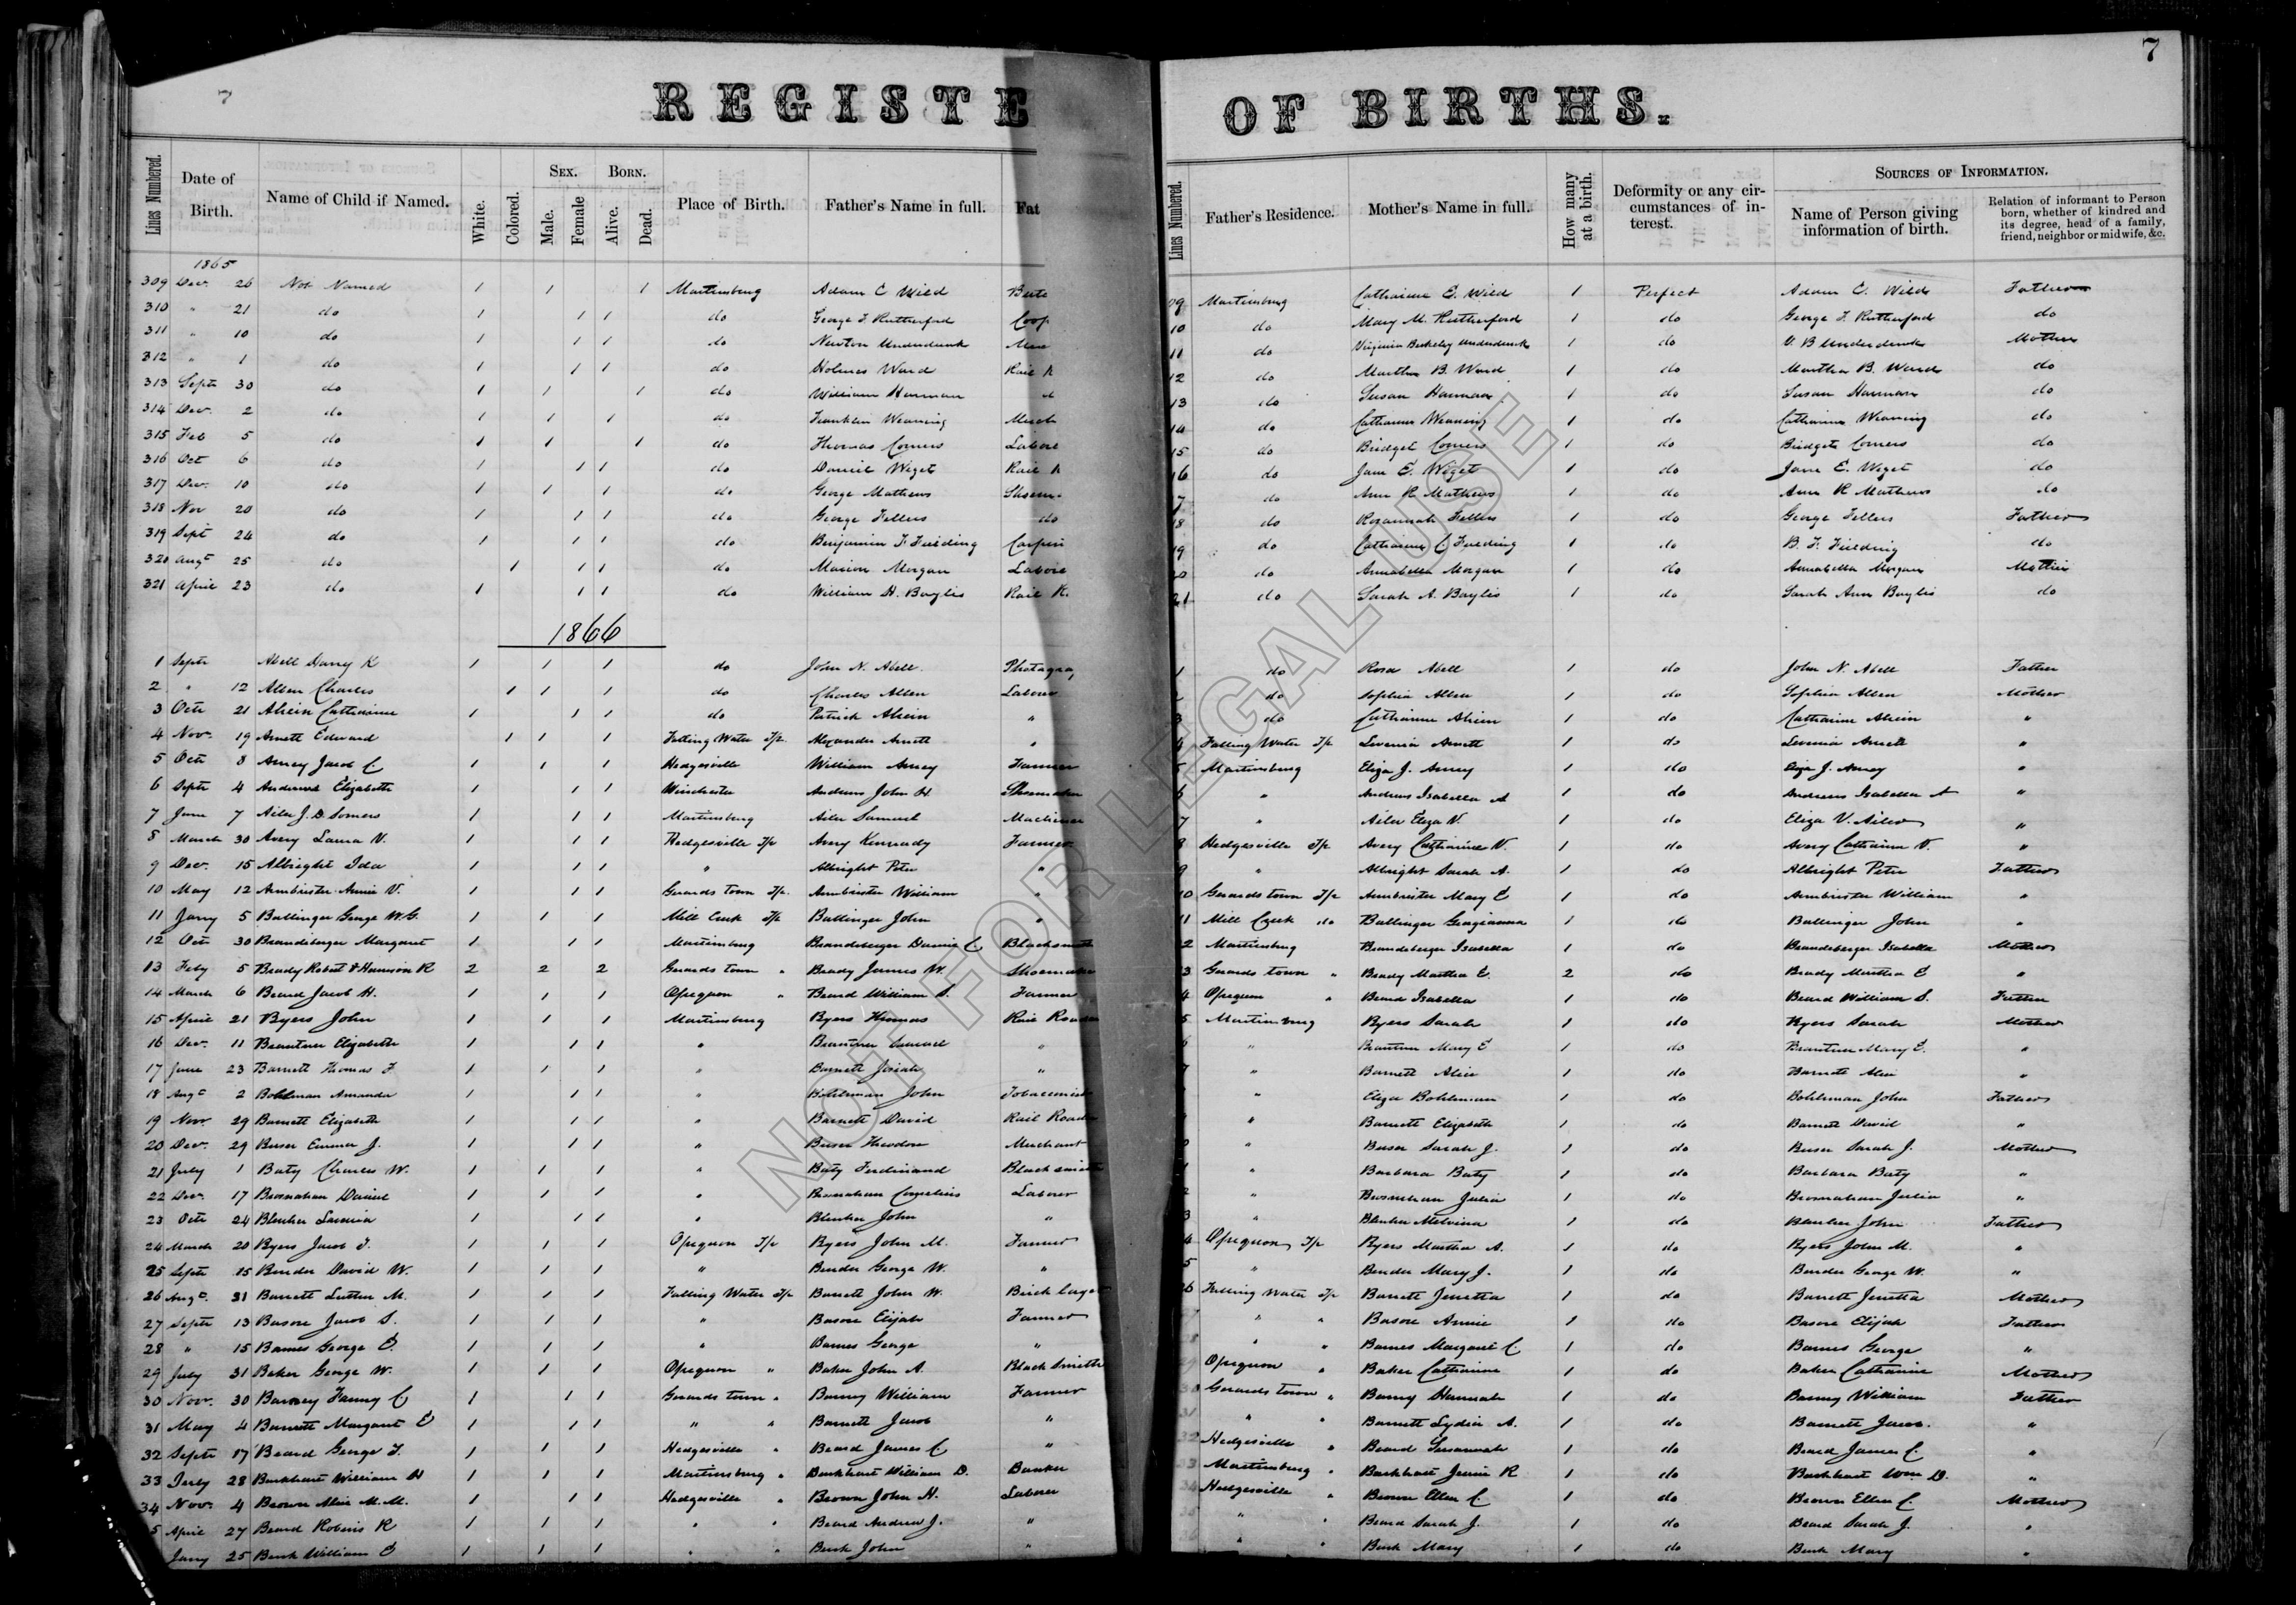 7
7
REGISTE OF BIRTHS.
Lines Numbered. Date of Birth. Name of Child if Named. White. Colored. Sex. Male. Female Born. Alive. Dead. Place of Birth. Father's Name in full. Fat
Lines Numbered. Father's Residence. Mother's Name in full. How many at a birth. Deformity or any circumstances of interest. Sources of Information. Name of Person giving information of birth. Relation of informant to Person born, whether of kindred and its degree, head of a family, friend, neighbor or midwife, &c.
1865
309 Dec. 26 Not Named 1 1 1 Martinsburg Adam C Wild 09 Martinsburg Catharine E. Wild 1 Perfect Adam C. Wild Father
310 " 21 do 1 1 1 do George F. Rutherford Coop 10 do Mary M. Rutherford 1 do George F. Rutherford do
311 " 10 do 1 1 1 do Newton Underdunk 11 do Virginia Berkeley Underdunk 1 do V. B Underdunk Mother
312 " 1 do 1 1 1 do Holmes Ward Rail R 12 do Martha B. Ward 1 do Martha B. Ward do
313 Septr 30 do 1 1 1 do William Harman d 13 do Susan Harman 1 do Susan Harman do
314 Dec. 2 do 1 1 1 do Franklin Weaning 14 do Catharine Weaning 1 do Catharine Weaning do
315 Feb 5 do 1 1 1 do Thomas Comers Labore 15 do Bridget Comers 1 do Bridget Comers do
316 Oct 6 do 1 1 1 do Daniel Wiget Rail R 16 do Jane E. Wiget 1 do Jane E. Wiget do
317 Dec. 10 do 1 1 1 do George Mathews Shoem 17 do Ann R Mathews 1 do Ann R Mathews do
318 Nov 20 do 1 1 1 do George Fellers do 18 do Rosannah Fellers 1 do George Fellers Father
319 Sept 24 do 1 1 1 do Benjamin F. Fielding Carpen 19 do Catharine C. Fielding 1 do B. F. Fielding do
320 Augt 25 do 1 1 1 do Marion Morgan Labore 20 do Annabella Morgan 1 do Annabella Morgan Mother
321 April 23 do 1 1 1 do William H. Baylis Rail R. 21 do Sarah A. Baylis 1 do Sarah Ann Baylis do
1866
1 Septr Abell Harry K 1 1 1 do John N. Abell Photagra 1 do Rosa Abell 1 do John N. Abell Father
2 " 12 Allen Charles 1 1 1 do Charles Allen Laborer 2 do Sophia Allen 1 do Sophia Allen Mother
3 Octr 21 Ahein Catharine 1 1 1 do Patrick Ahein " 3 do Catharine Ahein 1 do Catharine Ahein "
4 Nov. 19 Arnett Edward 1 1 1 Falling Water T/p Alexander Arnett " 4 Falling Water T/p Levenia Arnett 1 do Levenia Arnett "
5 Octr 8 Amey Jacob C 1 1 1 Hedgesville William Amey Farmer 5 Martinsburg Eliza J. Amey 1 do Eliza J. Amey "
6 Septr 4 Andrews Elizabeth 1 1 1 Winchester Andrews John H Shoemaker 6 " Andrews Isabella A 1 do Andrews Isabella A "
7 June 7 Ailer J. D. Somers 1 1 1 Martinsburg Ailer Samuel Machinest 7 " Ailer Eliza V. 1 do Eliza V. Ailer "
8 March 30 Avery Laura V. 1 1 1 Hedgesville T/p Avery Kennady Farmer 8 Hedgesville T/p Avery Catharine V. 1 do Avery Catharine V. "
9 Dec. 15 Albright Ida 1 1 1 " Albright Peter " 9 " Albright Sarah A. 1 do Albright Peter Father
10 May 12 Armbrister Annie V. 1 1 1 Gerards town T/p. Armbrister William " 10 Gerards town T/p Armbrister Mary E 1 do Armbrister William "
11 Jany 5 Ballinger George W. G. 1 1 1 Mill Creek T/p Ballinger John " 11 Mill Creek do Ballinger Georgianna 1 do Ballinger John "
12 Octr 30 Brandeberger Margaret 1 1 1 Martinsburg Brandeberger Daniel C. Blacksmith 2 Martinsburg Brandeberger Isabella 1 do Brandeberger Isabella Mother
13 Feby 5 Brady Robert & Harrison R 2 2 2 Gerards town " Brady James W. Shoemaker 3 Gerards town " Brady Martha E. 2 do Brady Martha E "
14 March 6 Beard Jacob H. 1 1 1 Opequon " Beard William S. Farmer 4 Opequon " Beard Isabella 1 do Beard William S. Father
15 April 21 Byers John 1 1 1 Martinsburg Byers Thomas Rail Roader 5 Martinsburg Byers Sarah 1 do Byers Sarah Mother
16 Dec. 11 Brantner Elizabeth 1 1 1 " Brantner Samuel " 6 " Brantner Mary E 1 do Brantner Mary E. "
17 June 23 Barnett Thomas F 1 1 1 " Barnett Josiah " 7 " Barnett Alice 1 do Barnett Alice "
18 Augt 2 Bohlman Amanda 1 1 1 " Bohlman John Tobacconist " Eliza Bohlman 1 do Bohlman John Father
19 Nov 29 Barnett Elizabeth 1 1 1 " Barnett David Rail Roader " Barnett Elizabeth 1 do Barnett David "
20 Dec. 29 Buser Emma J. 1 1 1 " Buser Theodore Merchant " Buser Sarah J. 1 do Buser Sarah J. Mother
21 July 1 Baty Charles W. 1 1 1 " Baty Ferdinand Blacksmith 1 " Barbara Baty 1 do Barbara Baty "
22 Dec. 17 Brosnahan Daniel 1 1 1 " Brosnahan Cornelius Laborer 2 " Brosnahan Julia 1 do Brosnahan Julia "
23 Octr 24 Blenker Lavenia 1 1 1 " Blenker John " 3 " Blenker Melvina 1 do Blenker John Father
24 March 20 Byers Jacob F. 1 1 1 Opequon T/p Byers John M. Farmer 4 Opequon T/p Byers Martha A. 1 do Byers John M. "
25 Septr 15 Bender David W. 1 1 1 " Bender George W. " 5 " Bender Mary J. 1 do Bender George W. "
26 Augt. 31 Barrett Luther M. 1 1 1 Falling Water T/p Barrett John W. Brick layer 26 Falling Water T/p Barrett Jenetta 1 do Barrett Jenetta Mother
27 Septr 13 Basore Jacob S. 1 1 1 " Basore Elijah Farmer " " Basore Annie 1 do Basore Elijah Father
28 " 15 Barnes George E. 1 1 1 " Barnes George " 8 " " Barnes Margaret C. 1 do Barnes George "
29 July 31 Baker George W. 1 1 1 Opequon " Baker John A. Black Smith 29 Opequon " Baker Catharine 1 do Baker Catharine Mother
30 Nov. 30 Barney Fanny C 1 1 1 Gerards town " Barny William Farmer 30 Gerards town " Barny Hannah 1 do Barny William Father
31 May 4 Barnett Margaret E 1 1 1 " " Barnett Jacob " 31 " " Barnett Lydia A. 1 do Barnett Jacob. "
32 Septr 17 Beard George F. 1 1 1 Hedgesville " Beard James C. " 32 Hedgesville " Beard Susannah 1 do Beard James C. "
33 July 28 Burkhart William H 1 1 1 Martinsburg " Burkhart William D. Banker 33 Martinsburg " Burkhart Jennie R 1 do Burkhart Wm D. "
34 Nov. 4 Brown Alice M. M. 1 1 1 Hedgesville " Brown John H. Laborer 34 Hedgesville " Brown Ellen C. 1 do Brown Ellen C. Mother
5 April 27 Beard Robins R 1 1 1 " " Beard Andrew J. " " " Beard Sarah J. 1 do Beard Sarah J. "
Jany 25 Busk William E 1 1 1 " " Busk John " " " Busk Mary 1 do Busk Mary "
NOT FOR LEGAL USE